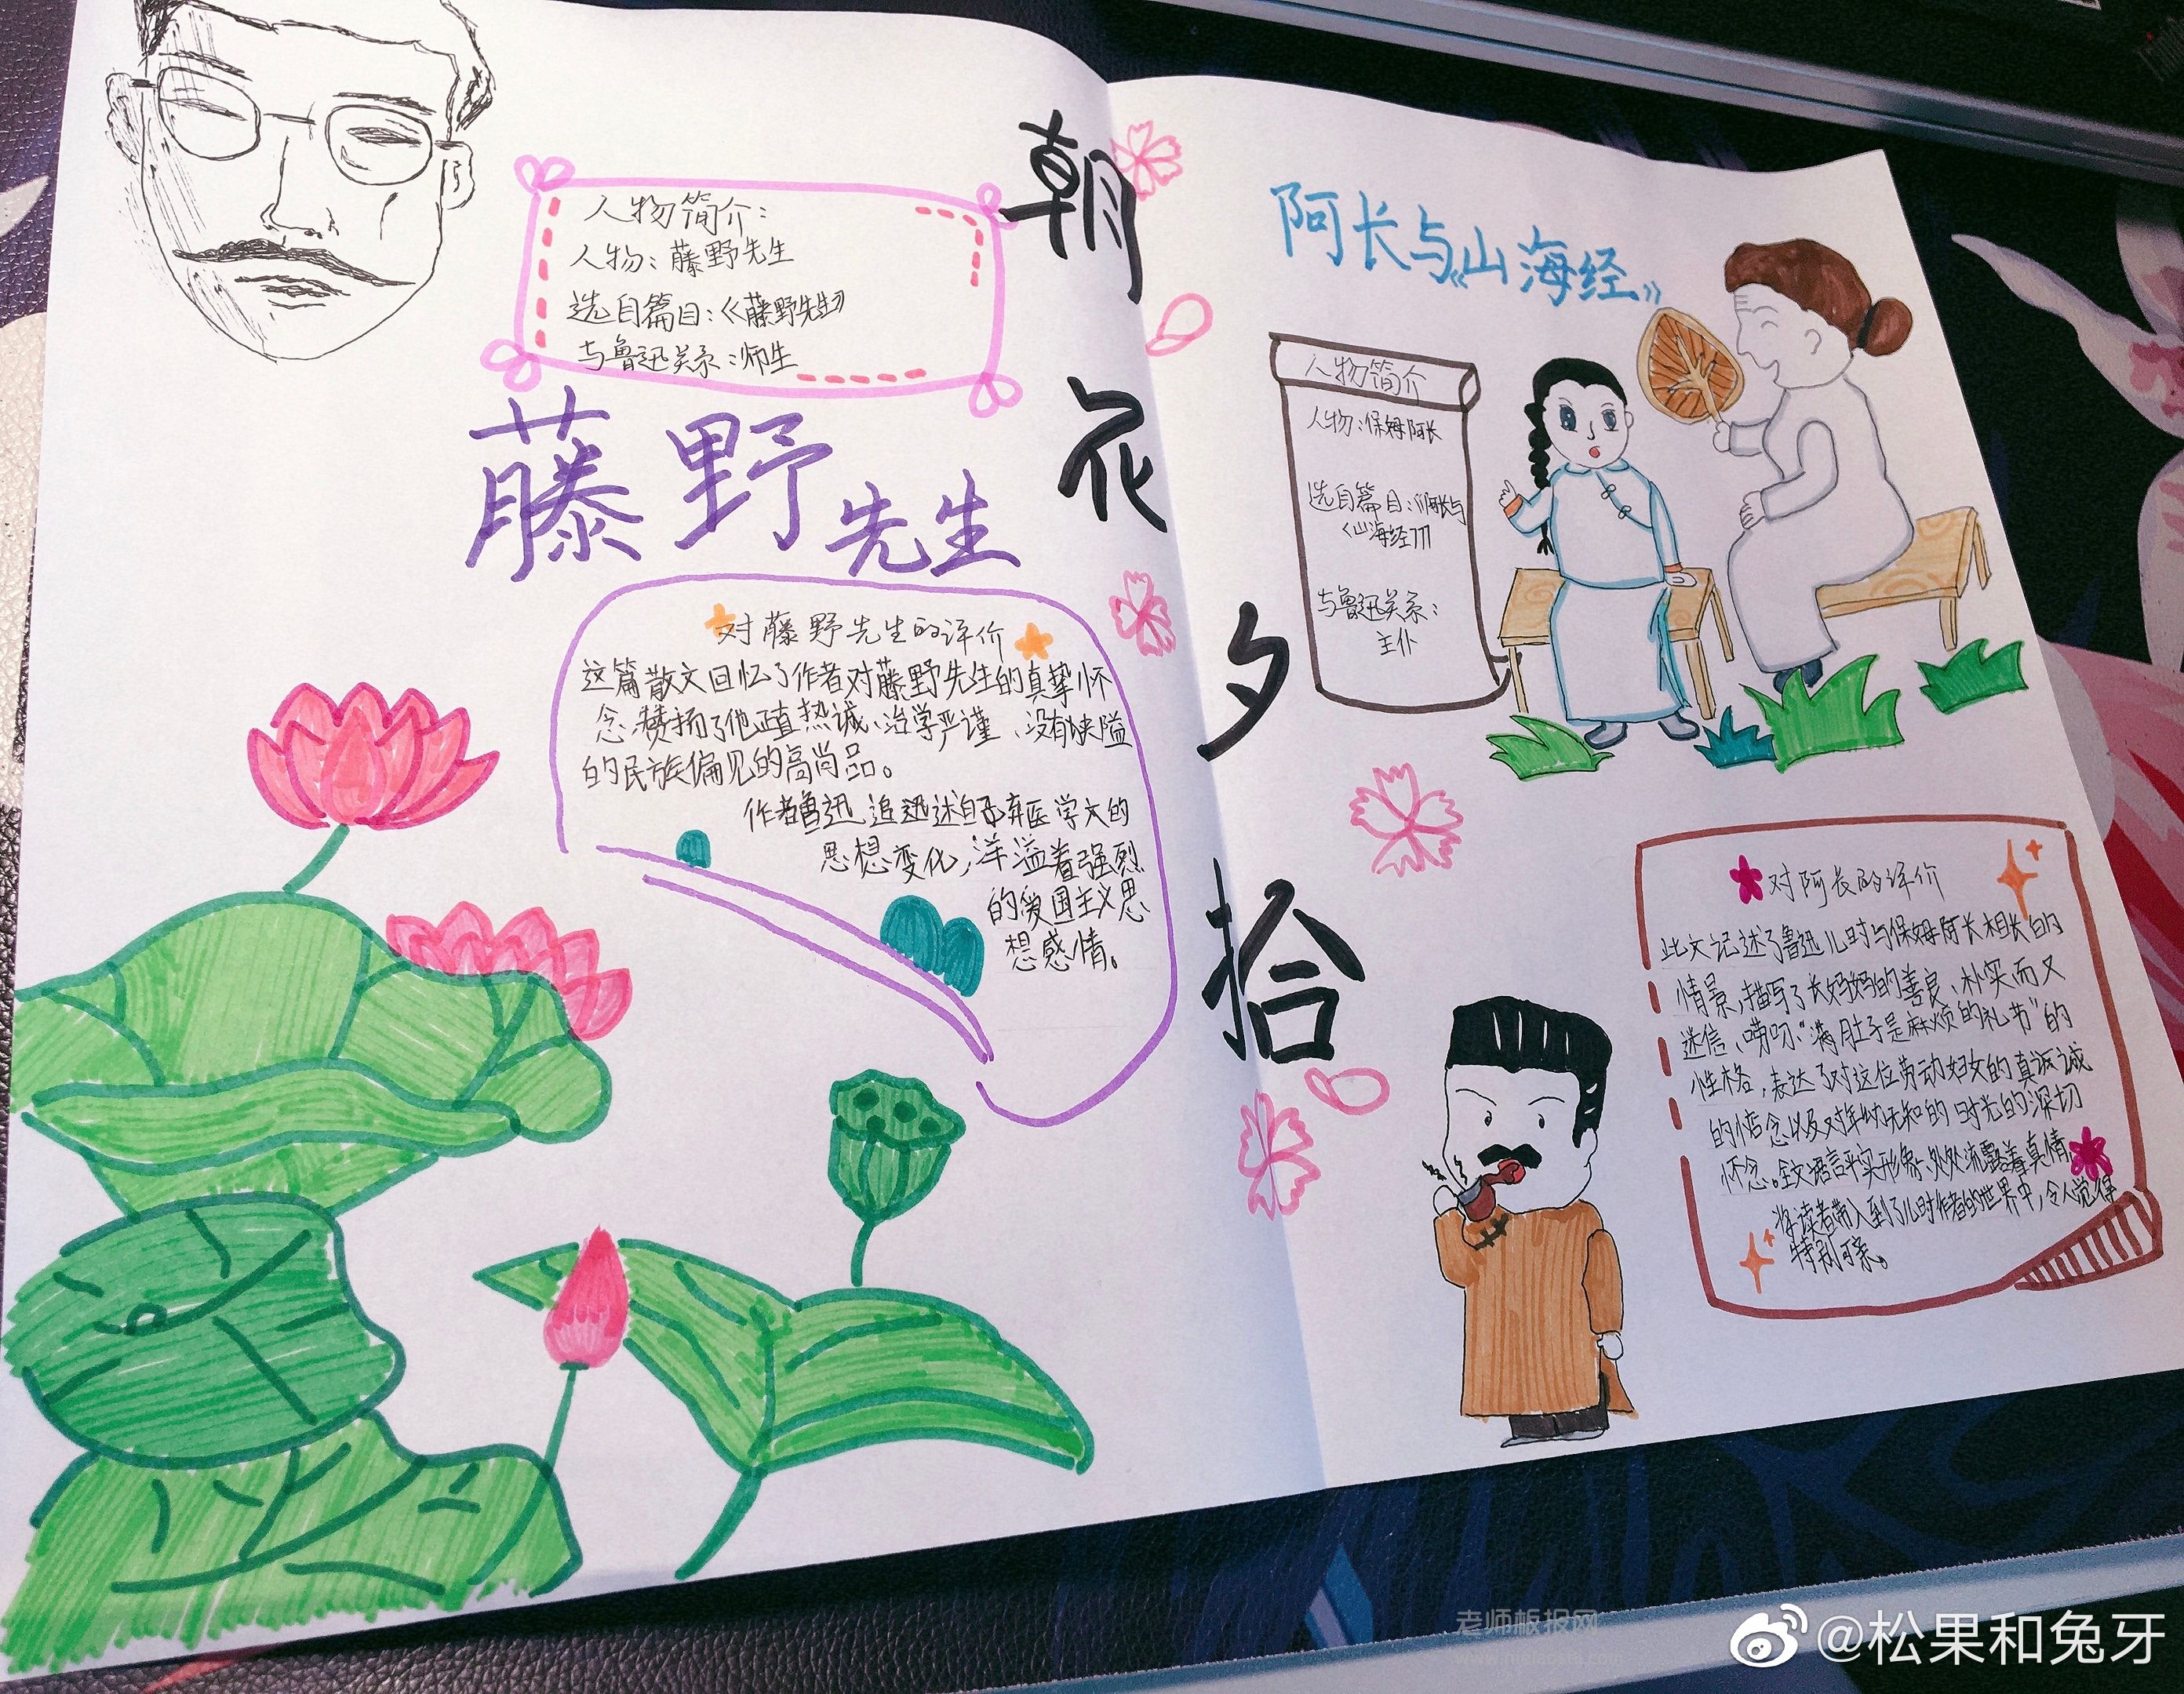 朝花夕拾
人物简介:
人物:藤野先生
选自篇目:《藤野先生》
与鲁迅关系:师生
藤野先生
对藤野先生的评价
这篇散文回忆了作者对藤野先生的真挚怀
念,赞扬了他正直热诚、治学严谨、没有狭隘
的民族偏见的高尚品。
作者鲁迅追迅述自己弃医学文的
思想变化,洋溢着强烈
的爱国主义思
想感情。
阿长与《山海经》
人物简介
人物:保姆阿长
选自篇目:《阿长与
《山海经》》
与鲁迅关系:
主仆
对阿长的评价
此文记述了鲁迅儿时与保姆阿长相长的
情景,描写了长妈妈的善良、朴实而又
迷信、唠叨“满肚子是麻烦的礼节”的
性格,表达了对这位劳动妇女的真诚
的怀念以及对年幼无知的时光的深切
怀念。全文语言平实形象、处处流露着真情
将读者带入到了儿时作者的世界中,令人觉得
特别可亲。
老师板报网
@松果和兔牙